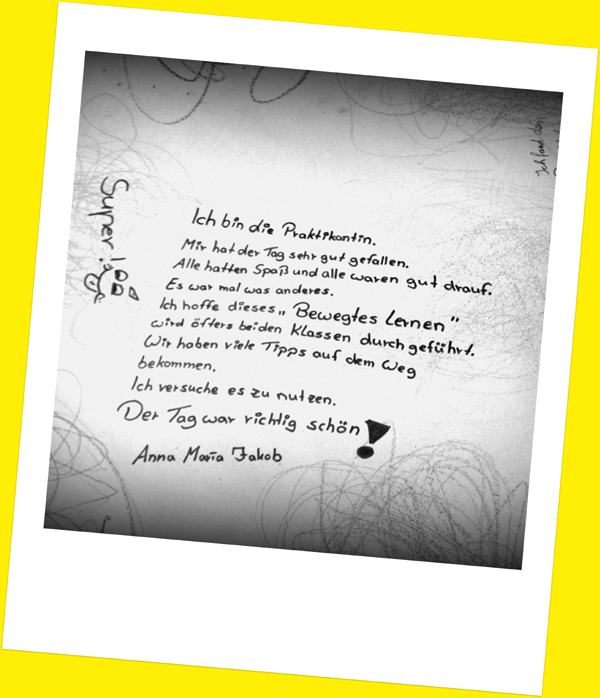 Ich fand den
Super!
Ich bin die Praktikantin.
Mir hat der Tag sehr gut gefallen.
Alle hatten Spaß und alle waren gut drauf.
Es war mal was anderes.
Ich hoffe dieses „Bewegtes Lernen"
wird öfters beiden Klassen durchgeführt.
Wir haben viele Tipps auf dem Weg
bekommen.
Ich versuche es zu nutzen.
Der Tag war richtig schön!
Anna Maria Jakob